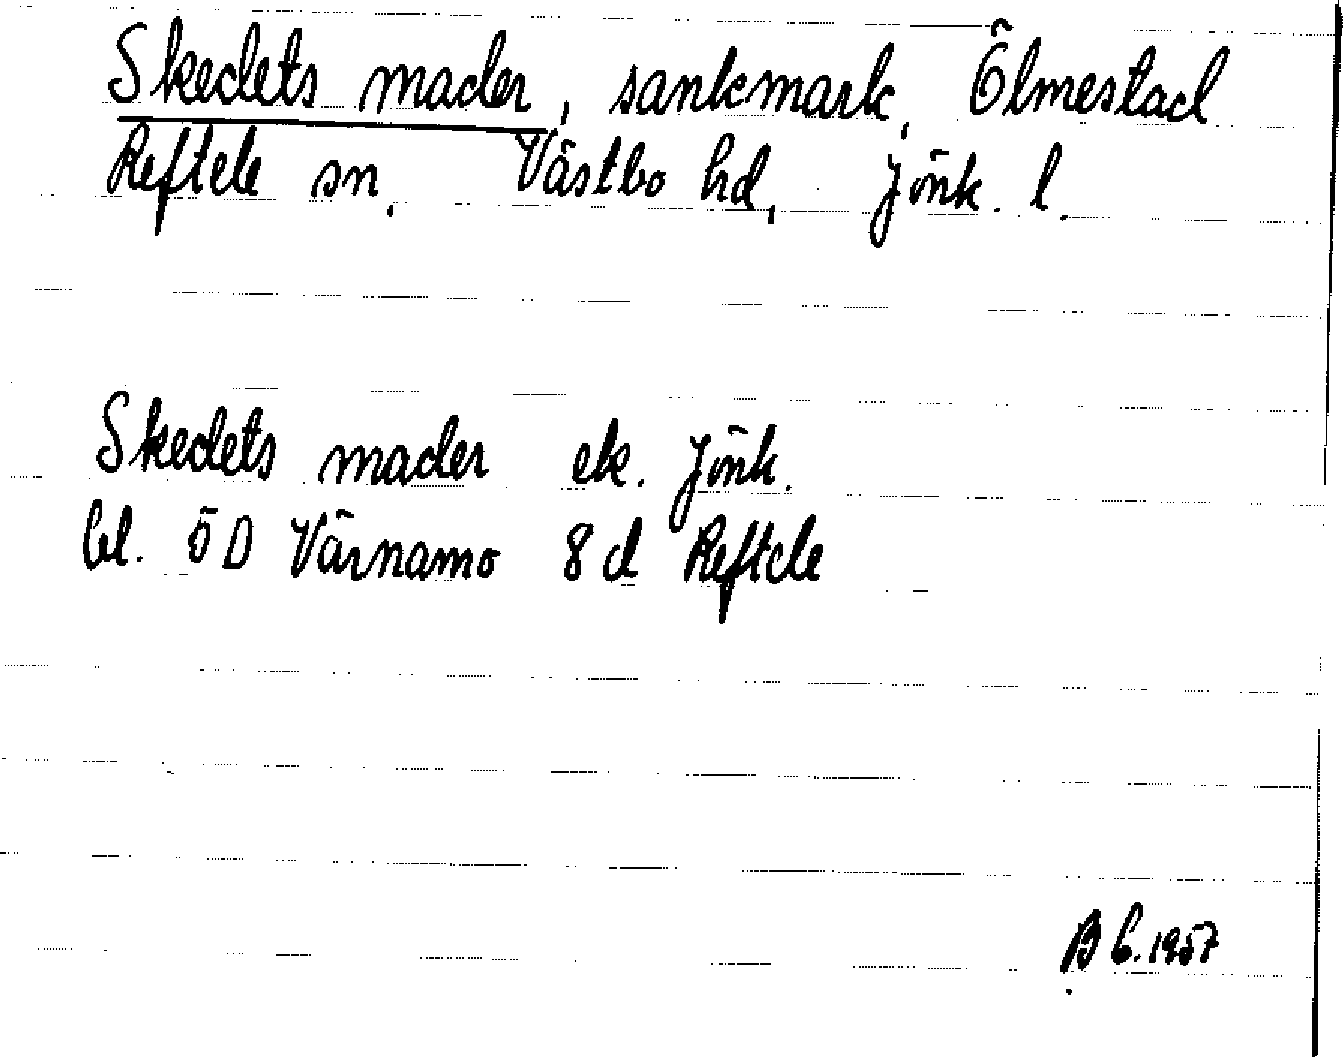 Skedets mader, sankmark, Ölmestad
Reftele sn. Västbo hd, Jönk. l.
Skedets mader ek. Jönk.
bl. 5D Värnamo 8d Reftele
B b. 1957